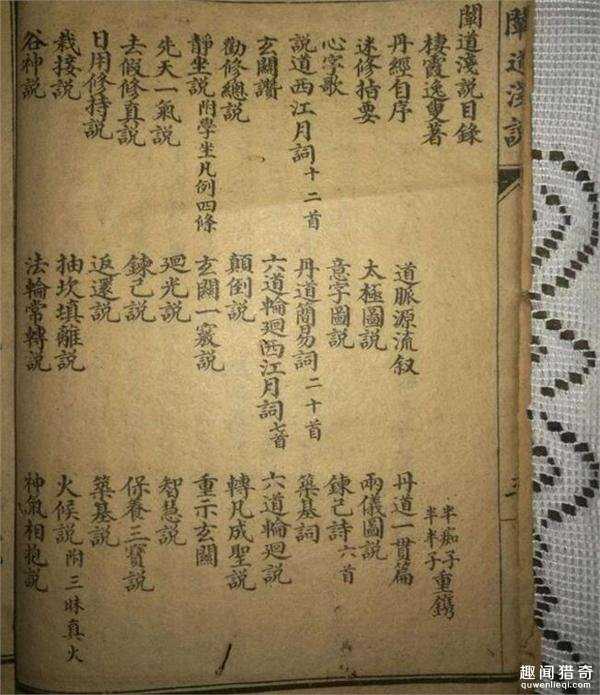 闡道淺説
闡道淺説目錄
棲霞逸叟著 半痴子 半半子 重鐫
丹經自序 道脈源流叙 丹道一貫篇
迷修指要 太極圖説 兩儀圖説
心字歌 意字圖説 鍊己詩六首
説道西江月詞十二首 丹道簡易詞二十首 築基詞
玄關讚 六道輪廻西江月詞七首 六道輪廻説
勸修總説 顛倒説 轉凡成聖説
靜坐説附學坐凡例四條 玄關一竅説 重示玄關
先天一氣説 廻光説 智慧説
去假修真説 鍊己説 保養三寶説
日用修持説 返還説 築基説
栽接説 抽坎填離説 火候説附三昧真火
谷神説 法輪常轉説 神氣相抱説
趣闻猎奇
quwenlieqi.com